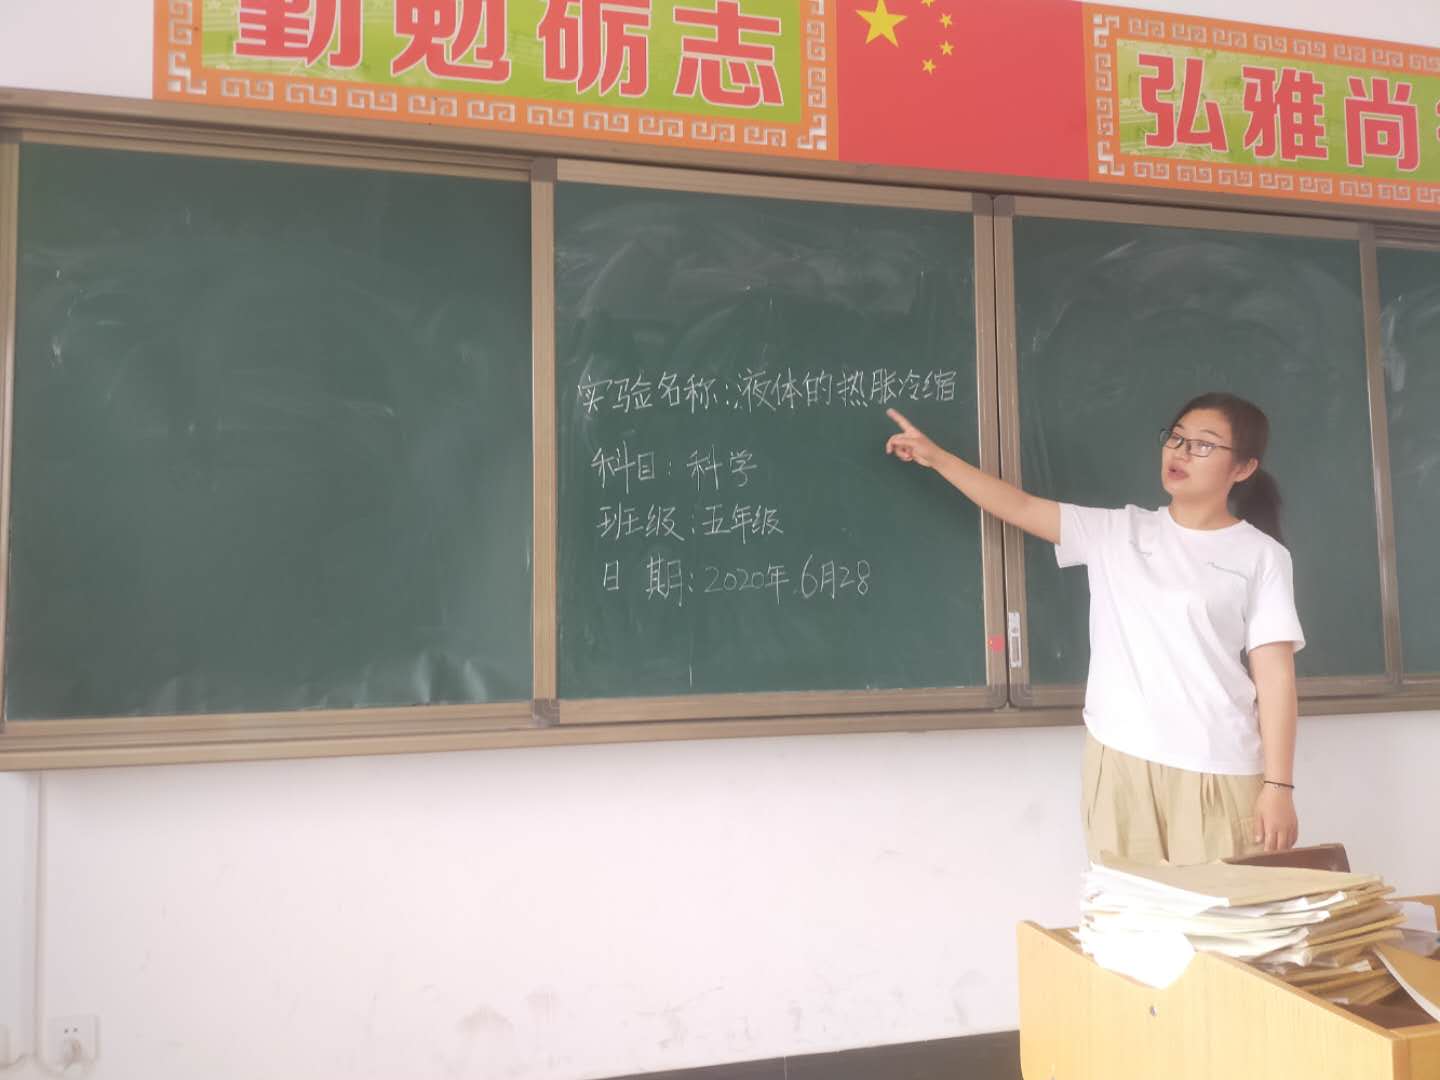 勤勉砺志
弘雅尚
实验名称:液体的热胀冷缩
科目:科学
班级:五年级
日期:2020年6月28